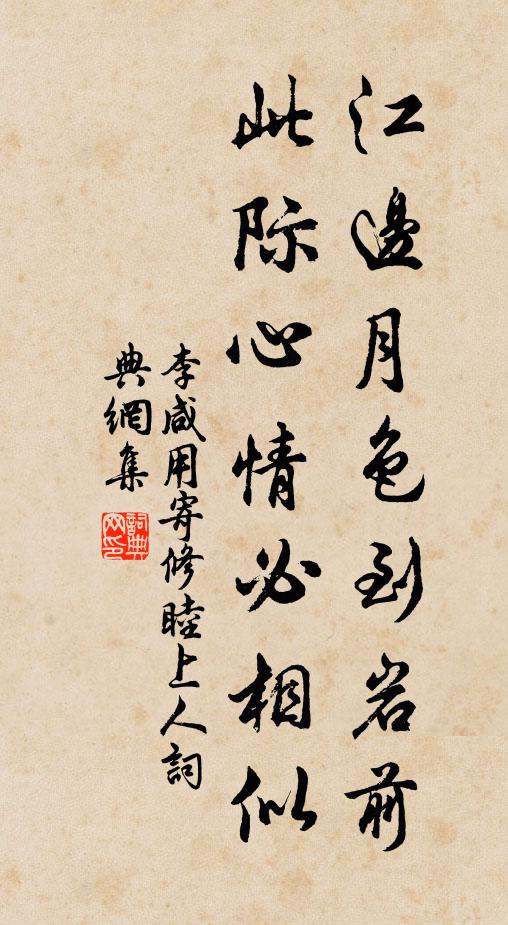 江邊月色到岩前
此際心情必相似
李咸用寄修睦上人詞
典網集
詞典網印